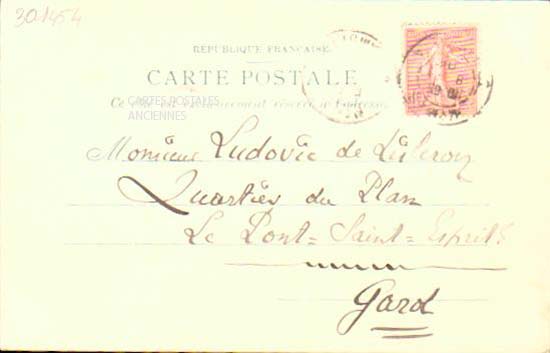 30-1454
RÉPUBLIQUE FRANÇAISE
CARTE POSTALE
Ce côté est exclusivement réservé à l'adresse
CARTES POSTALES
ANCIENNES
Monsieur Ludovic de
Quartier du Plan
Le Pont-Saint-Esprit
Gard